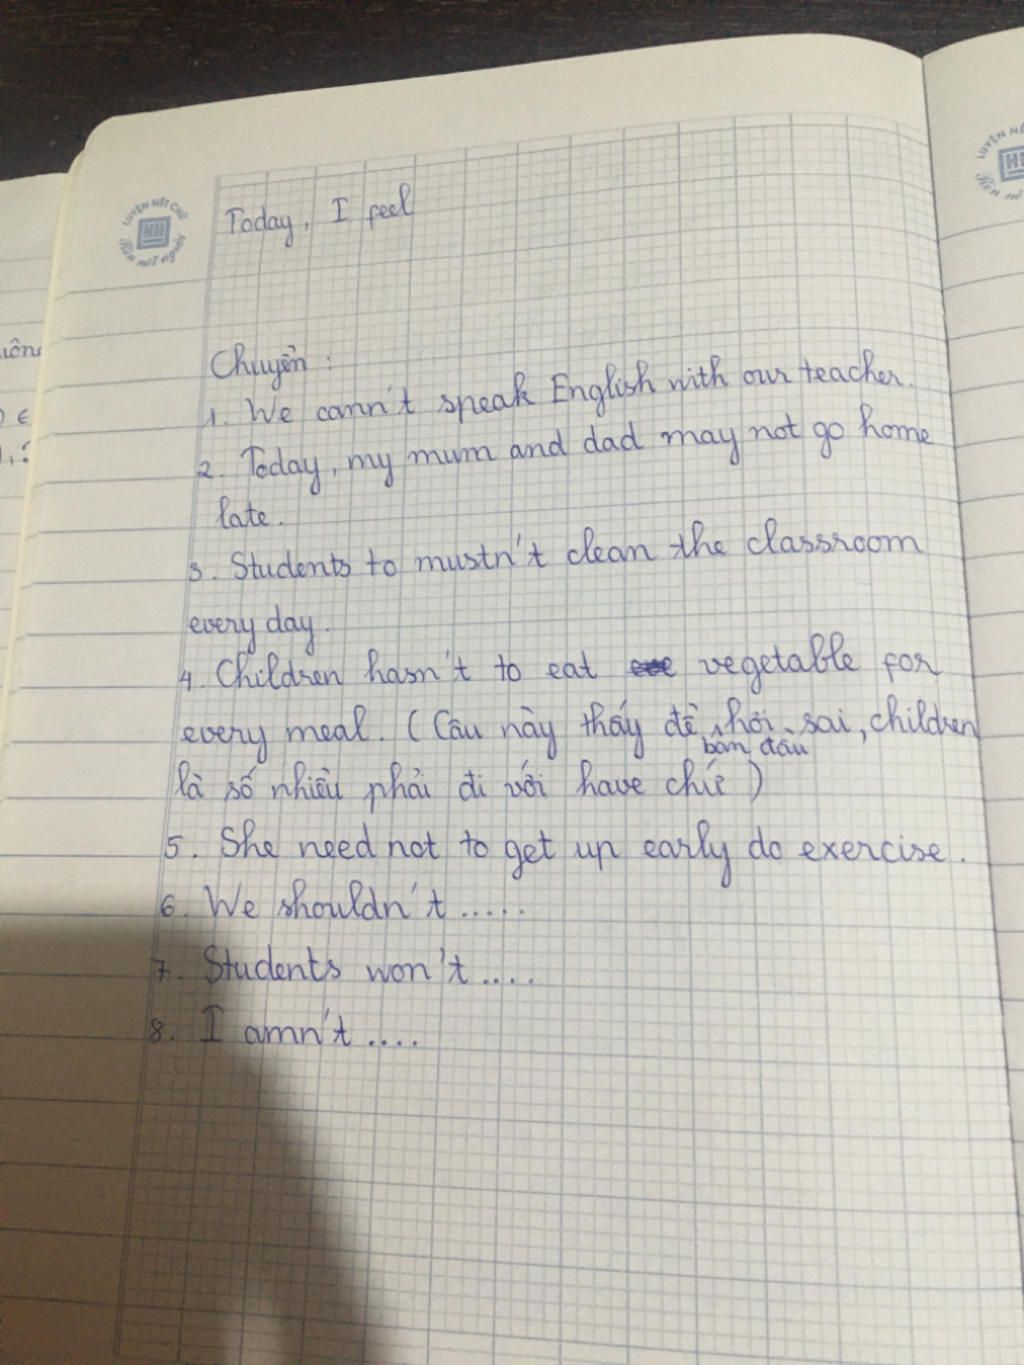 LUYỆN NÉT CHỮ
HH
Rèn nết người
Today, I feel
Chuyển :
1. We camn't speak English with our teacher.
2. Today, my mum and dad may not go home
late.
3. Students to mustn't clean the classroom
every day.
4. Children hasn't to eat vegetable for
every meal. (Câu này thấy đề hơi sai, children
bam đầu
là số nhiều phải đi với have chứ)
5. She need not to get up early do exercise.
6. We shouldn't .....
7. Students won't ....
8. I amn't ....